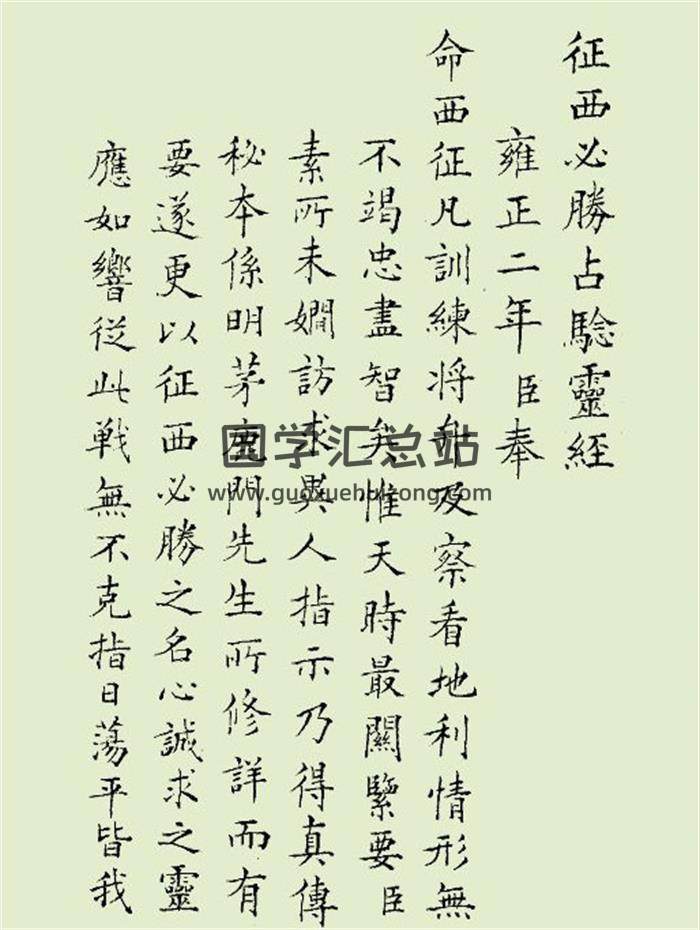 征西必勝占驗靈経
雍正二年臣奉
命西征凡訓練将卒及察看地利情形無
不竭忠盡智矣惟天時最關緊要臣
素所未嫺訪求異人指示乃得真傳
秘本係明茅鹿門先生所修詳而有
要遂更以征西必勝之名心誠求之靈
應如響従此戰無不克指日蕩平皆我
国学汇总站
www.guoxuehuizong.com